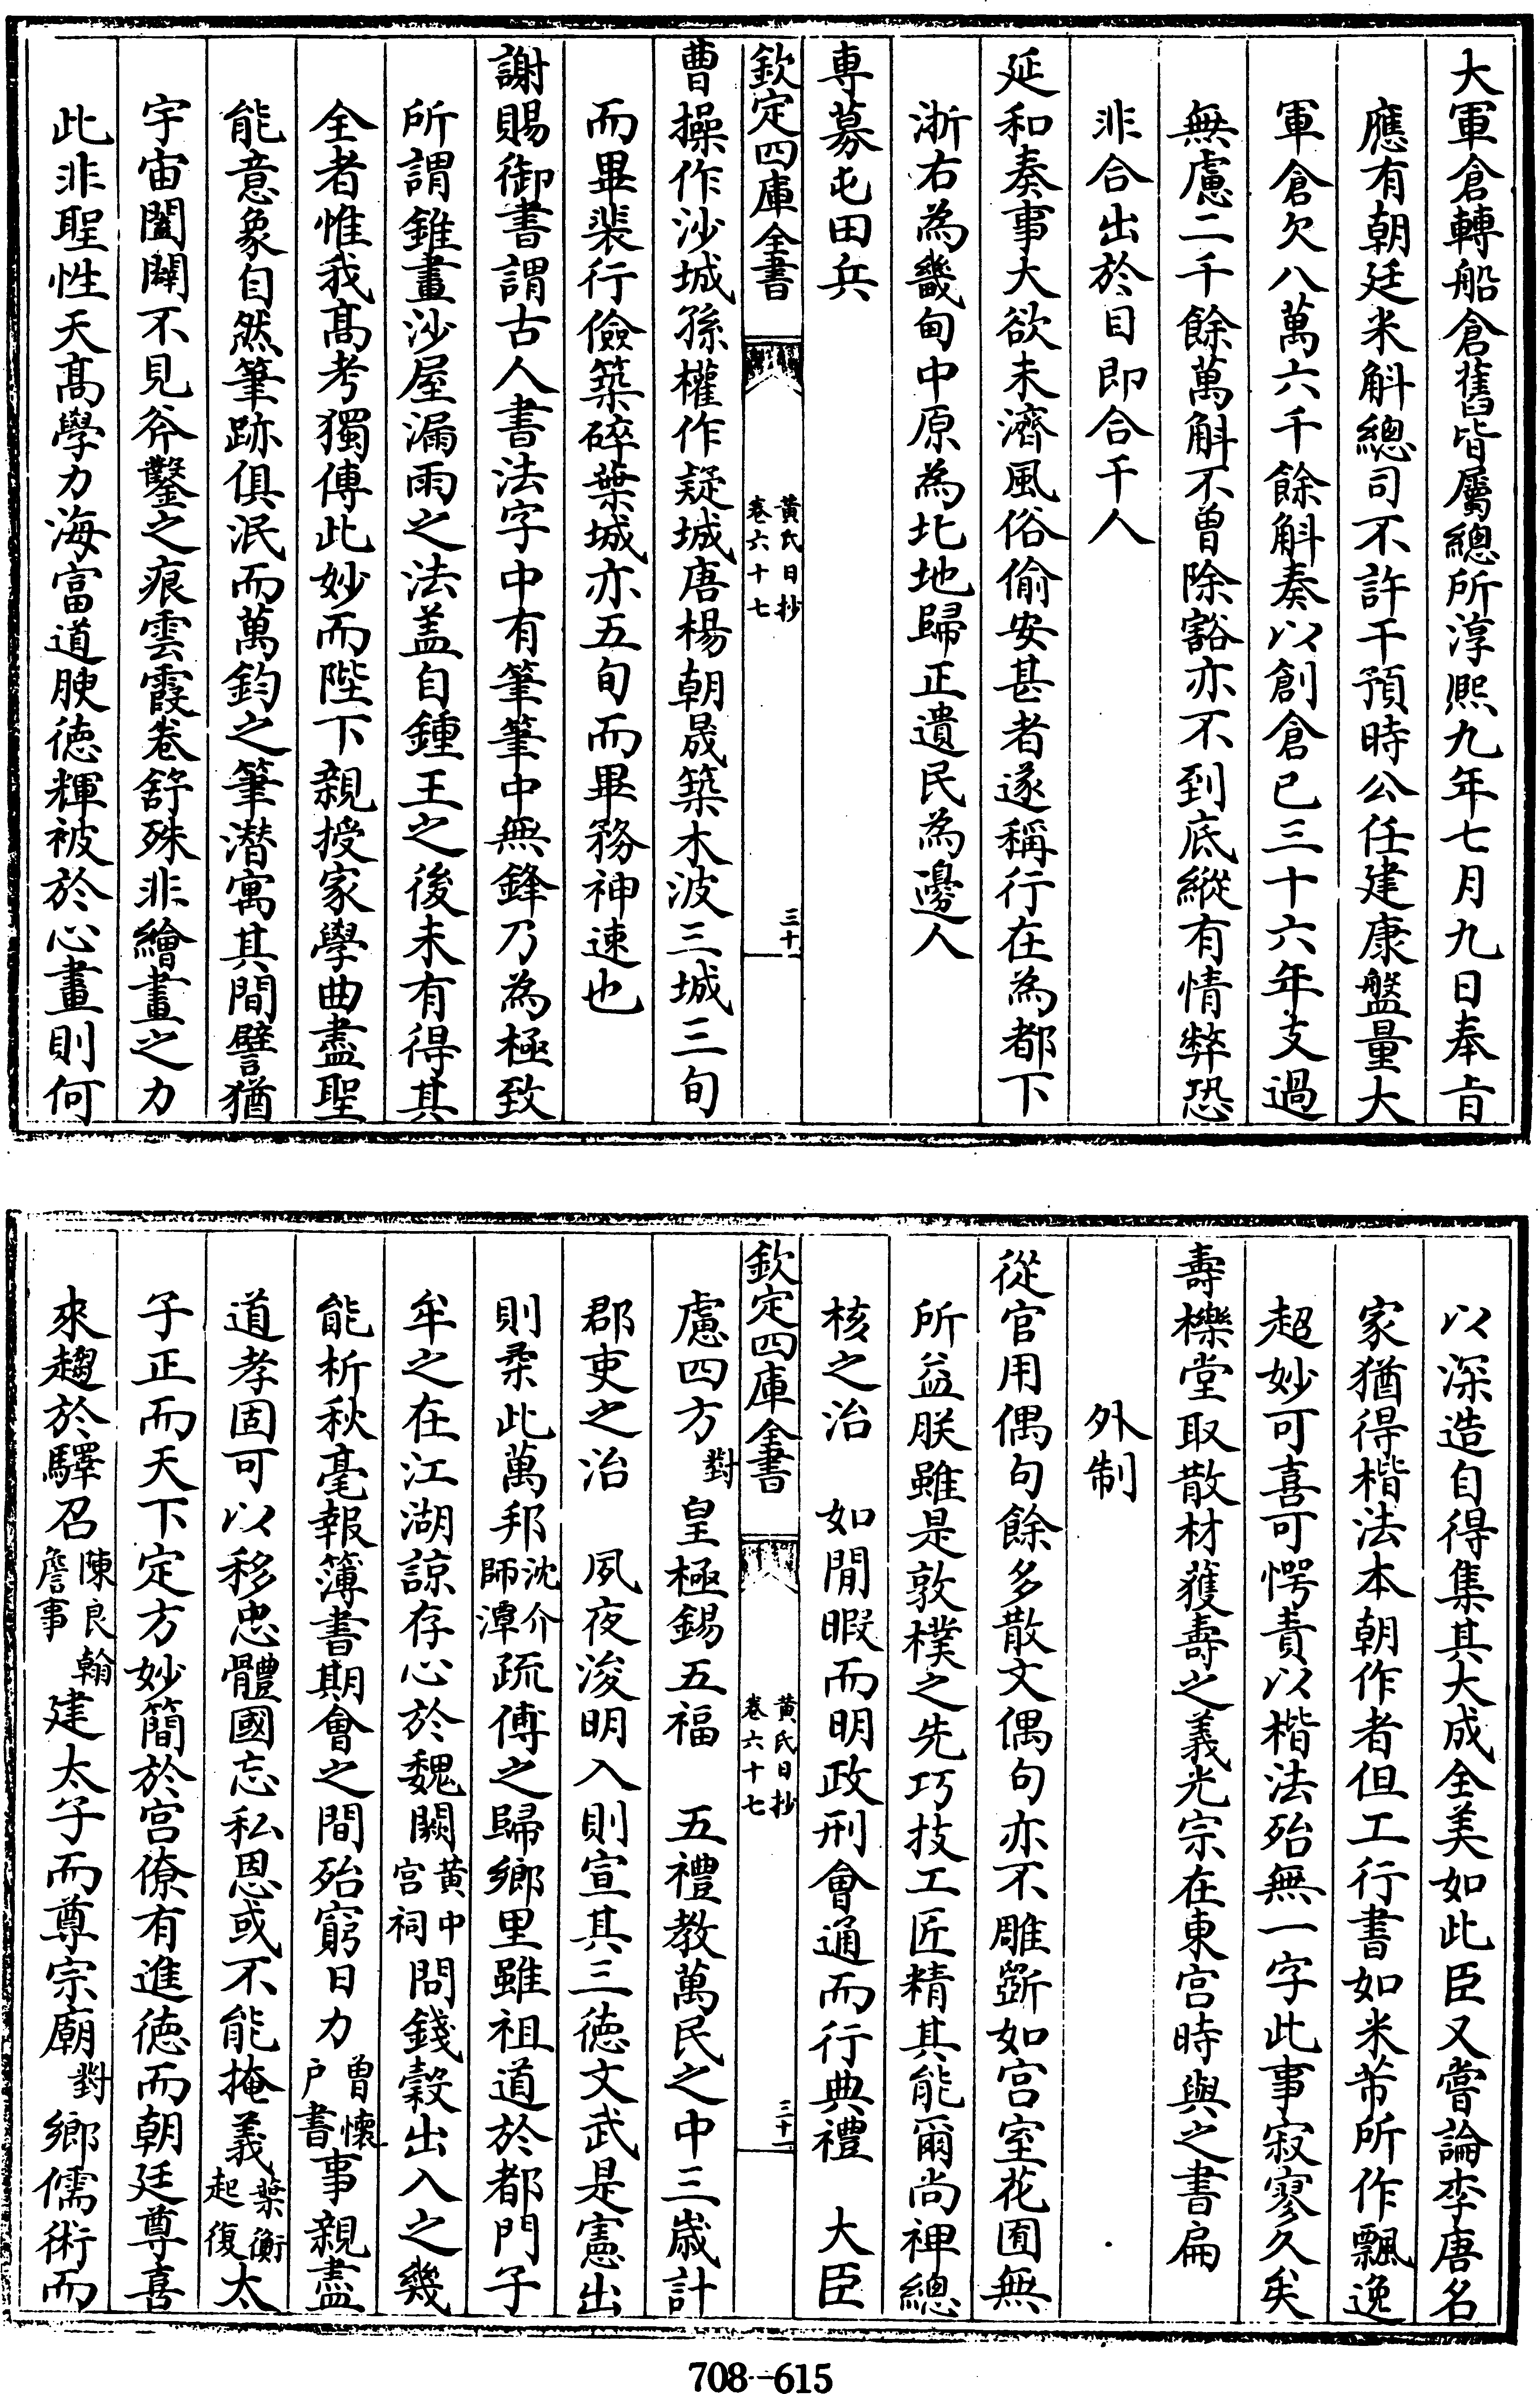 大軍倉轉船倉舊皆屬總所淳熙九年七月九日奉旨
應有朝廷米斛總司不許干預時公任建康盤量大
軍倉欠八萬六千餘斛奏以創倉已三十六年支過
無慮二千餘萬斛不曽除豁亦不到底縱有情弊恐
非合出於目即合干人
延和奏事大欲未濟風俗偷安甚者遂稱行在為都下
浙右為畿甸中原為北地歸正遺民為邊人
専募屯田兵
欽定四庫全書 黄氏日抄 卷六十七 三十
曹操作沙城孫權作疑城唐楊朝晟築木波三城三旬
而畢裴行儉築碎葉城亦五旬而畢務神速也
謝賜御書謂古人書法字中有筆筆中無鋒乃為極致
所謂錐畫沙屋漏雨之法蓋自鍾王之後未有得其
全者惟我髙考獨傳此妙而陛下親授家學曲盡聖
能意象自然筆跡俱泯而萬鈞之筆潛寓其間譬猶
宇宙闔闢不見斧鑿之痕雲霞卷舒殊非繪畫之力
此非聖性天髙學力海富道腴徳輝被於心畫則何
以深造自得集其大成全美如此臣又嘗論李唐名
家猶得楷法本朝作者但工行書如米芾所作飄逸
超妙可喜可愕責以楷法殆無一字此事寂寥久矣
壽櫟堂取散材獲壽之義光宗在東宫時與之書扁
外制
從官用偶句餘多散文偶句亦不雕斵如宫室花囿無
所益朕雖是敦樸之先巧技工匠精其能爾尚裨總
核之治 如閒暇而明政刑會通而行典禮 大臣
欽定四庫全書 黄氏日抄 卷六十七 三十一
慮四方對皇極錫五福 五禮教萬民之中三嵗計
郡吏之治 夙夜浚明入則宣其三徳文武是憲出
則柔此萬邦沈介師潭疏傅之歸鄉里雖祖道於都門子
牟之在江湖諒存心於魏闕黄中宫祠問錢穀出入之幾
能析秋毫報簿書期會之間殆窮日力曽懷户書事親盡
道孝固可以移忠體國忘私恩或不能掩義葉衡起復太
子正而天下定方妙簡於宫僚有進徳而朝廷尊喜
來趨於驛召陳良翰詹事建太子而尊宗廟對鄉儒術而
708—615